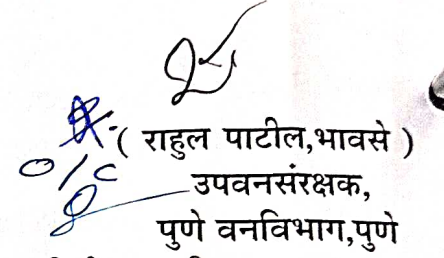 ( राहुल पाटील,भावसे )
O/C
उपवनसंरक्षक,
पुणे वनविभाग,पुणे